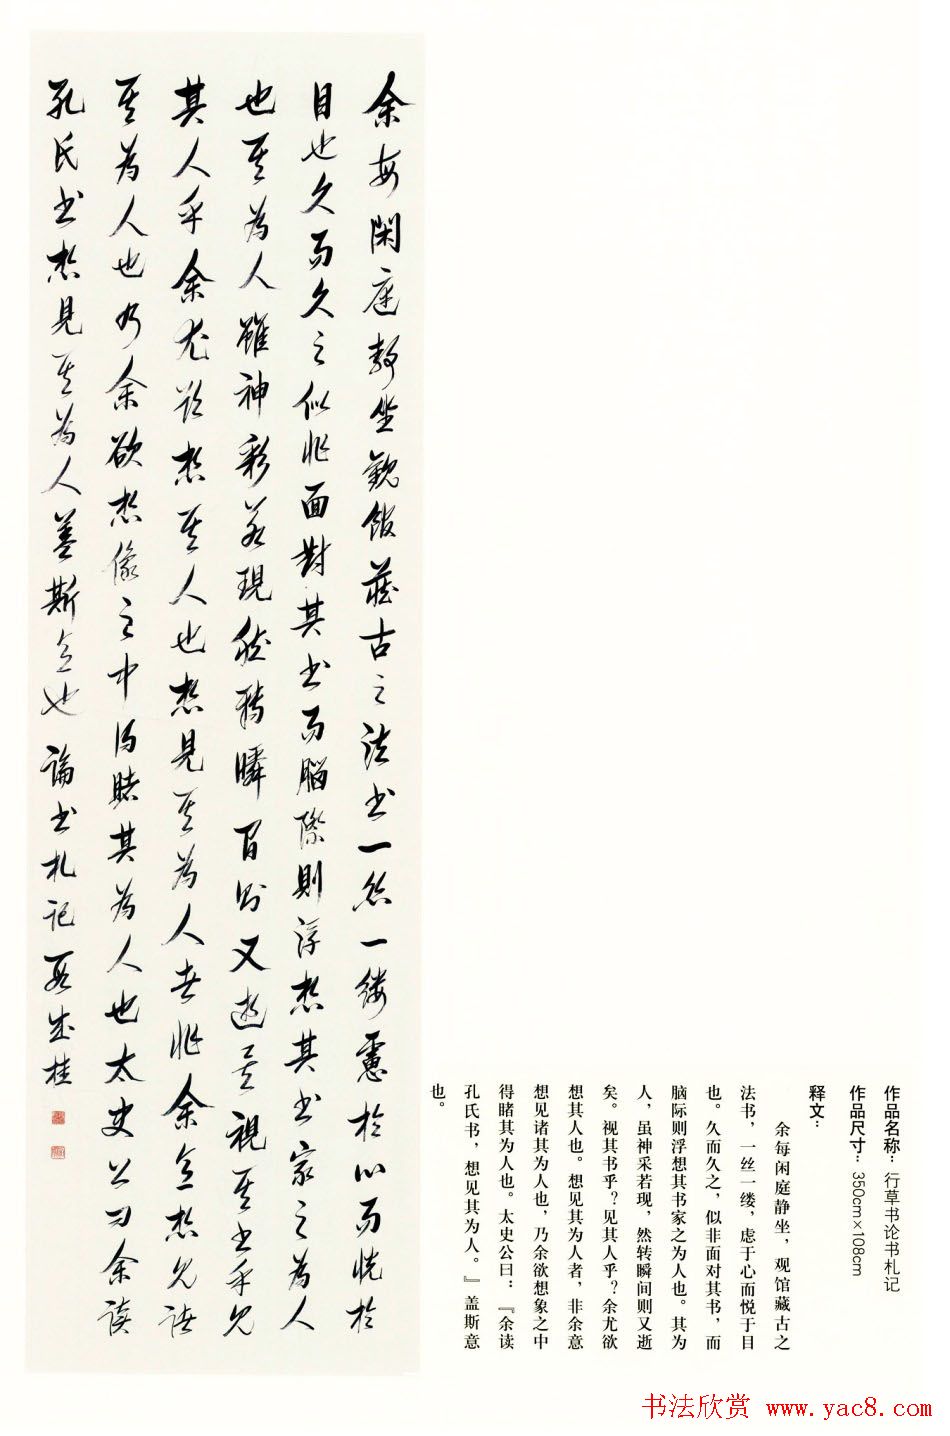 余每閑庭静坐觀館藏古之法书一丝一缕慮於心而悦於
目也久而久之似非面對其书而腦際則浮想其书家之為人
也其為人雖神彩若現然轉瞬間则又逝矣視其书乎见
其人乎余尤欲想其人也想見其為人者非余意想见诸
其為人也乃余欲想像之中得睹其為人也太史公曰余读
孔氏书想見其為人蓋斯意也 論书札记 成桂
作品名称：行草书论书札记
作品尺寸：350cm×108cm
释文：
余每闲庭静坐，观馆藏古之
法书，一丝一缕，虑于心而悦于目
也。久而久之，似非面对其书，而
脑际则浮想其书家之为人也。其为
人，虽神采若现，然转瞬间则又逝
矣。视其书乎？见其人乎？余尤欲
想其人也。想见其为人者，非余意
想见诸其为人也，乃余欲想象之中
得睹其为人也。太史公曰：『余读
孔氏书，想见其为人。』盖斯意
也。
书法欣赏 www.yac8.com